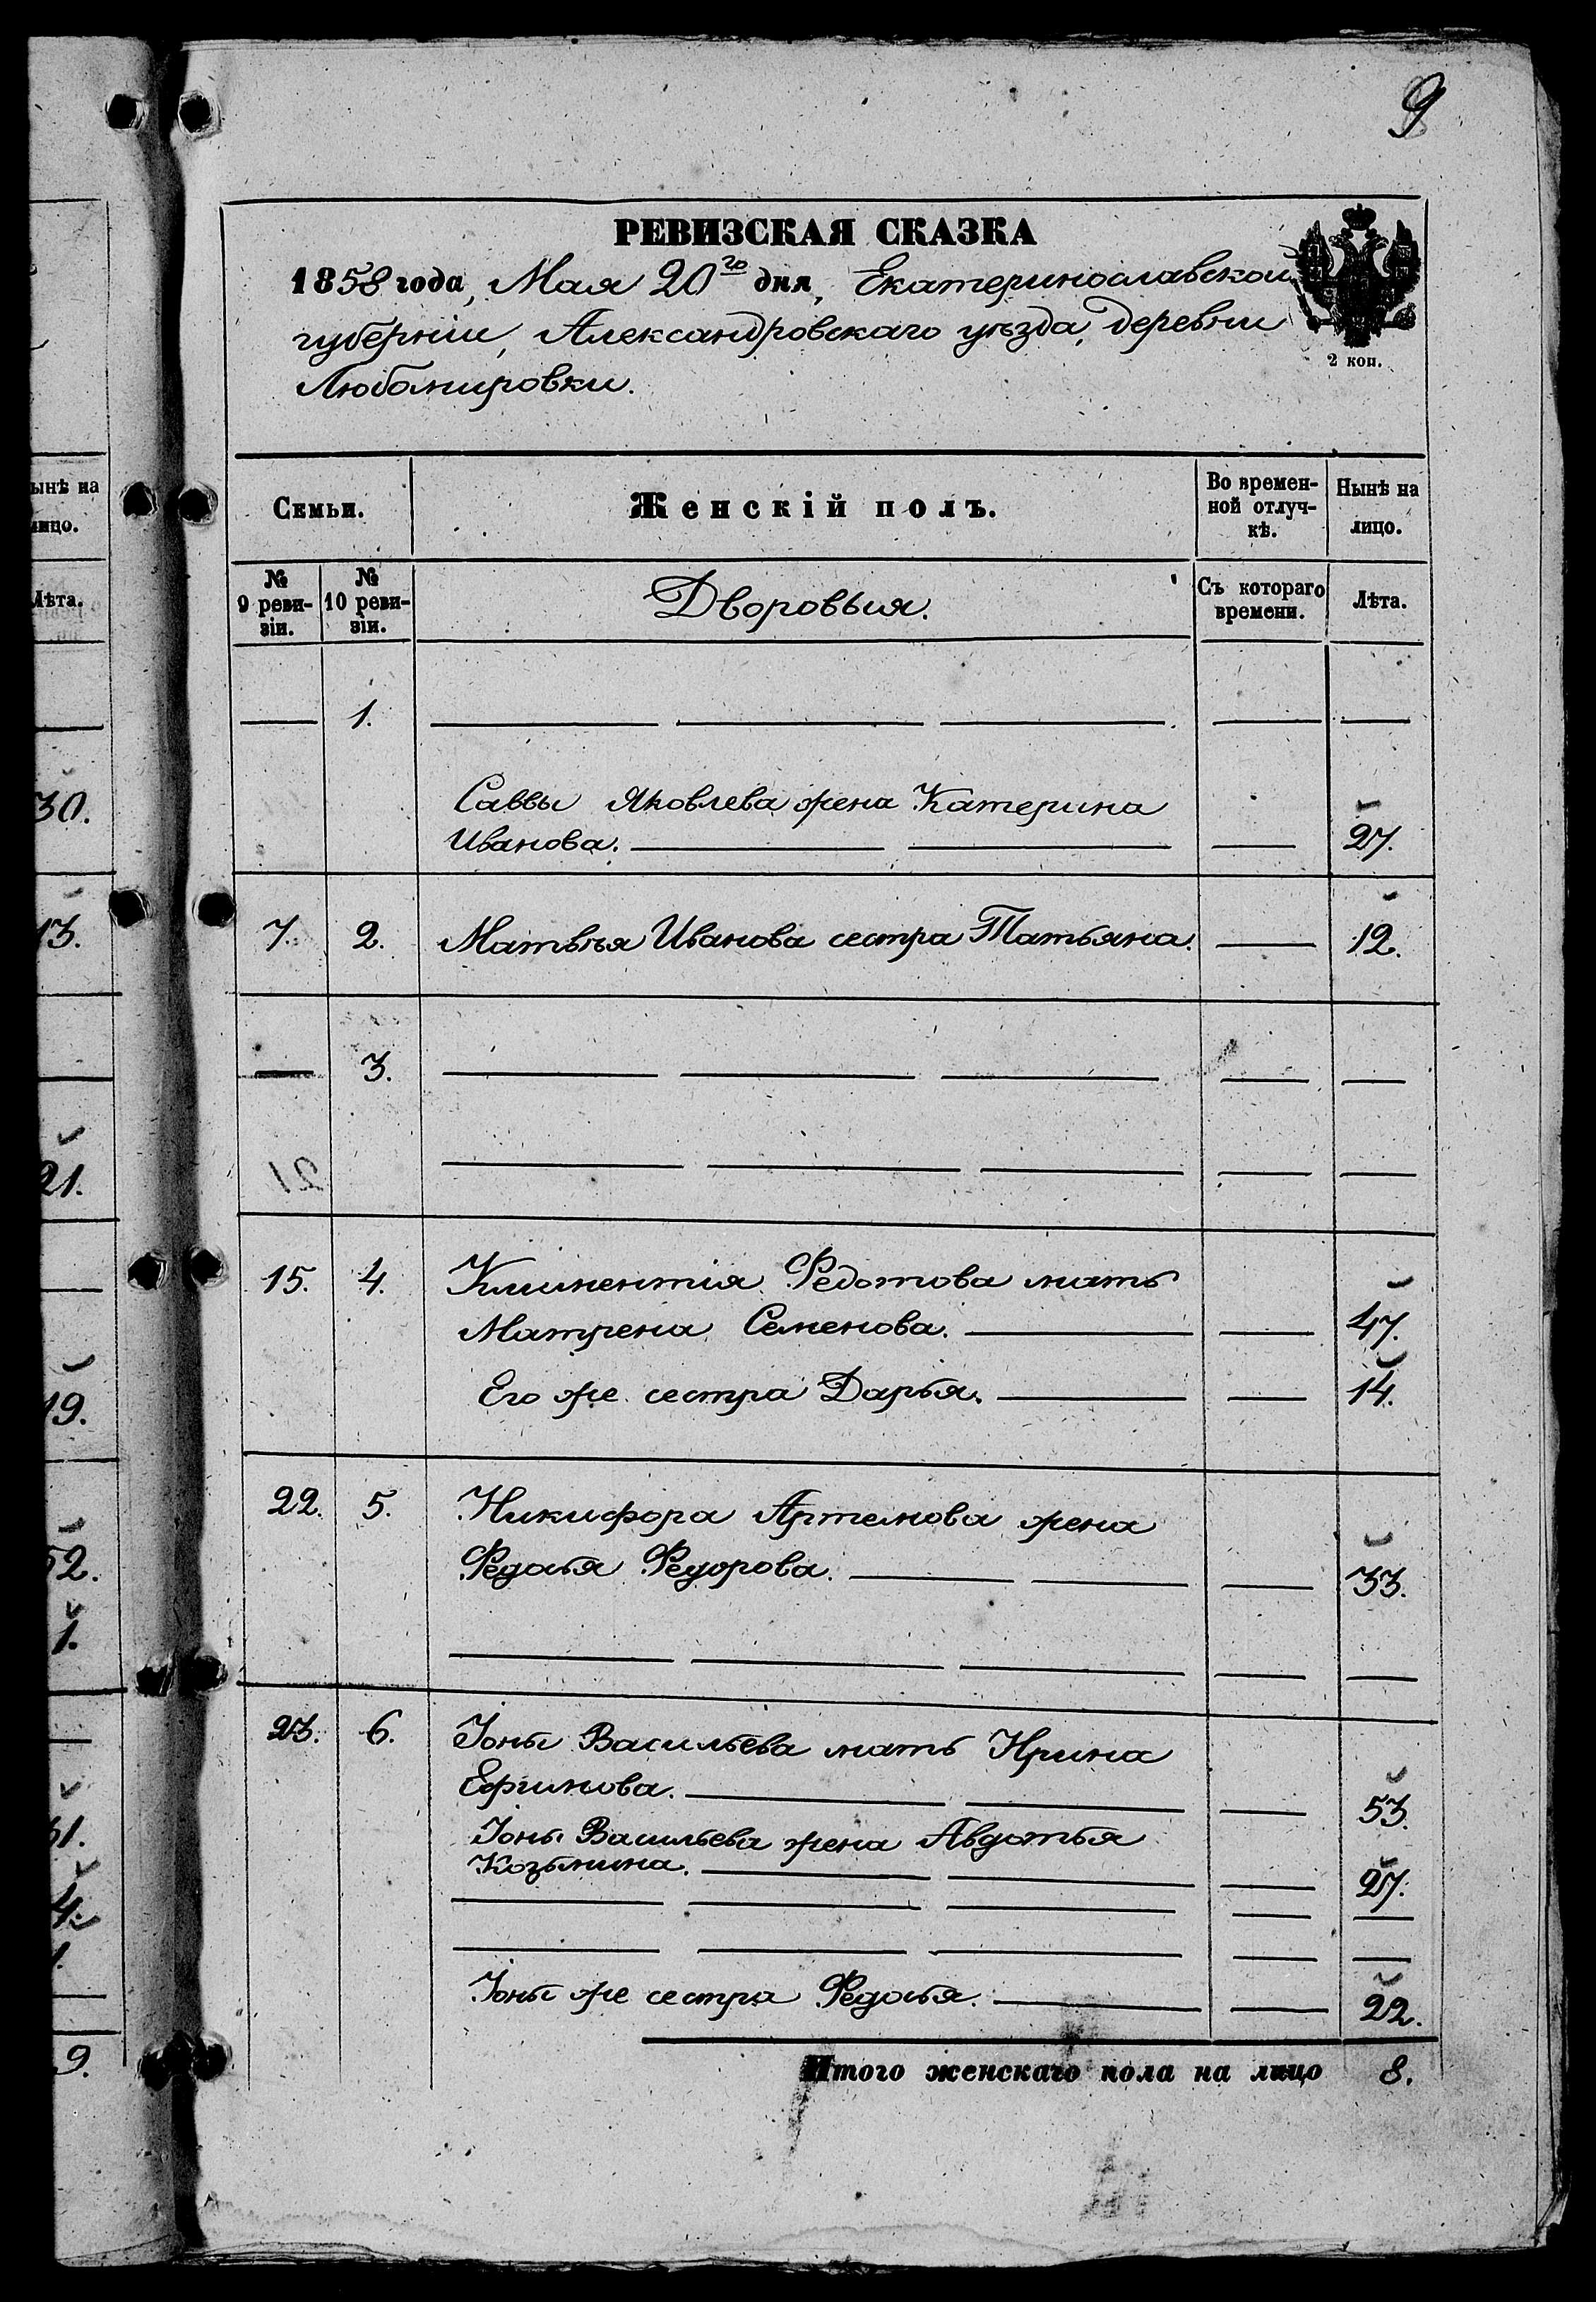 9
РЕВИЗСКАЯ СКАЗКА
1858 года, Мая 20го дня, Екатеринославской
губерніи, Александровскаго уѣзда, деревни
Любомировки.
2 коп.
Семьи.
Женскій полъ.
Во времен-
ной отлуч-
кѣ.
Нынѣ на
лицо.
№
9 реви-
зіи.
№
10 реви-
зіи.
Дворовыя.
Съ котораго
времени.
Лѣта.
1.
Саввы Яковлева жена Катерина
Иванова. 27.
7. 2. Матвѣя Иванова сестра Татьяна. 12.
3.
15. 4. Климентія Федотова мать
Матрена Семенова. 47.
Его же сестра Дарья. 14.
22. 5. Никифора Артемова жена
Федосья Федорова. 33.
23. 6. Іоны Васильева мать Ирина
Ефимова. 53.
Іоны Васильева жена Авдотья
Козьмина. 27.
Іоны же сестра Федосья. 22.
Итого женскаго пола на лицо 8.
ынѣ на
лицо.
Лѣта.
30.
13.
21.
19.
52.
1.
31.
4.
1.
9.